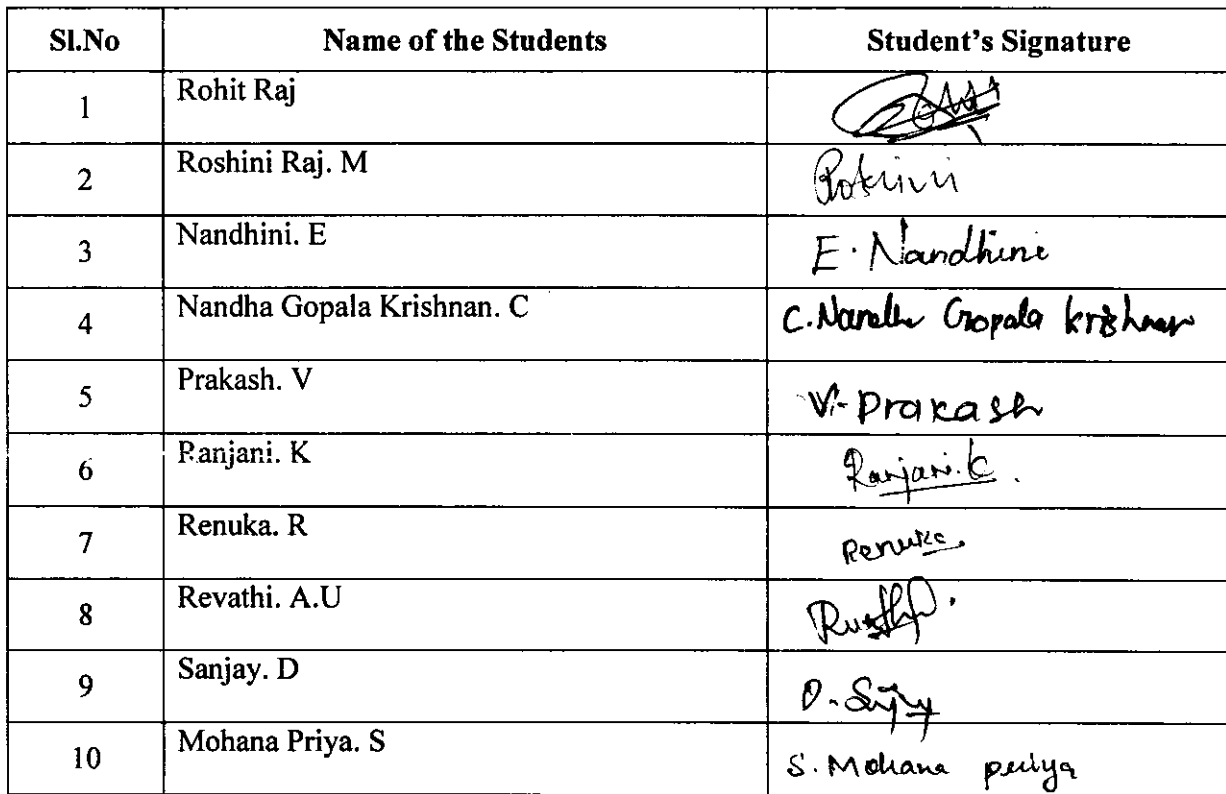 Sl.No Name of the Students Student's Signature
1 Rohit Raj
2 Roshini Raj. M Roshini
3 Nandhini. E E. Nandhini
4 Nandha Gopala Krishnan. C C. Nandha Gopala Krishnan
5 Prakash. V V. Prakash
6 Ranjani. K Ranjani. K.
7 Renuka. R Renuka
8 Revathi. A.U
9 Sanjay. D D. Sanjay
10 Mohana Priya. S S. Mohana priya